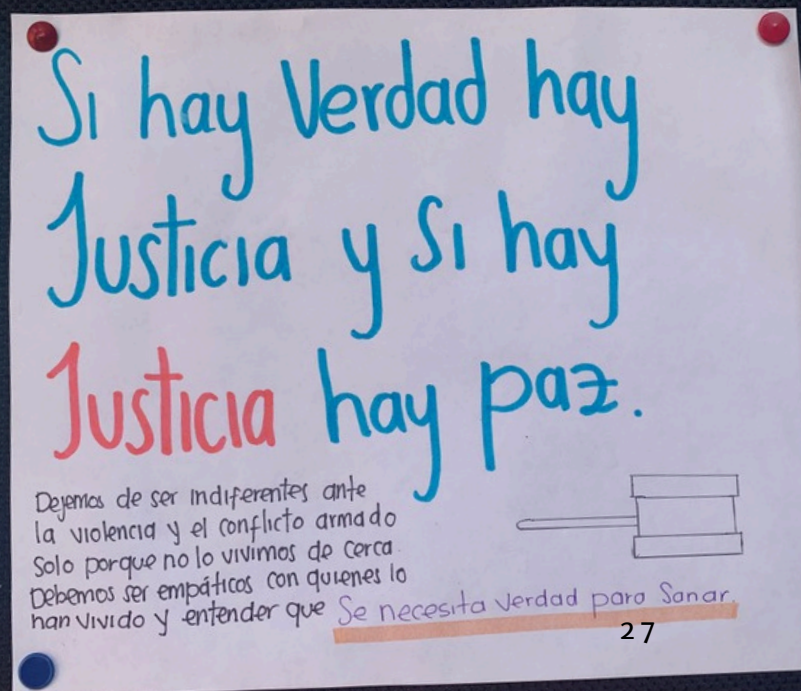 Si hay Verdad hay
Justicia y si hay
Justicia hay paz.
Dejemos de ser indiferentes ante
la violencia y el conflicto armado
Solo porque no lo vivimos de cerca
Debemos ser empáticos con quienes lo
han vivido y entender que Se necesita verdad para Sanar.
27